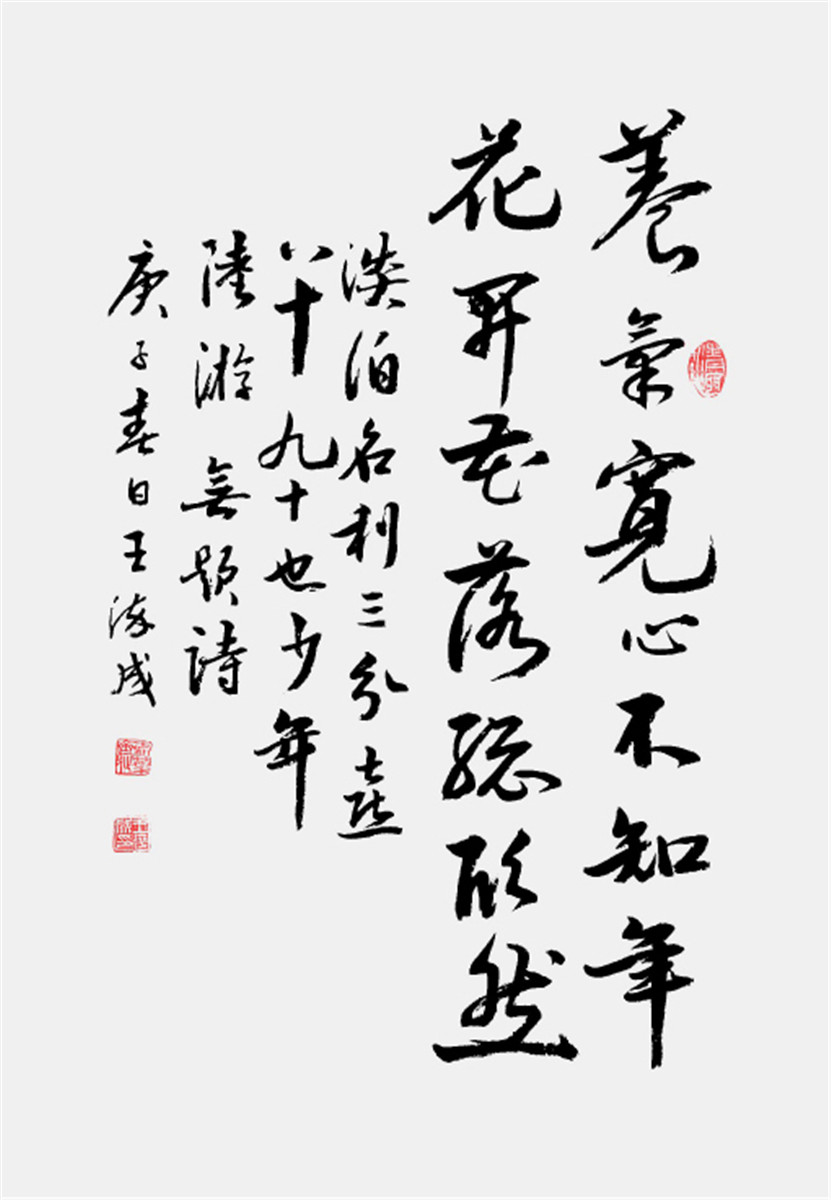 養氣寬心不知年
花開花落總欣然
淡泊名利三分喜
八十九十也少年
陸游無題詩
庚子春日王海成